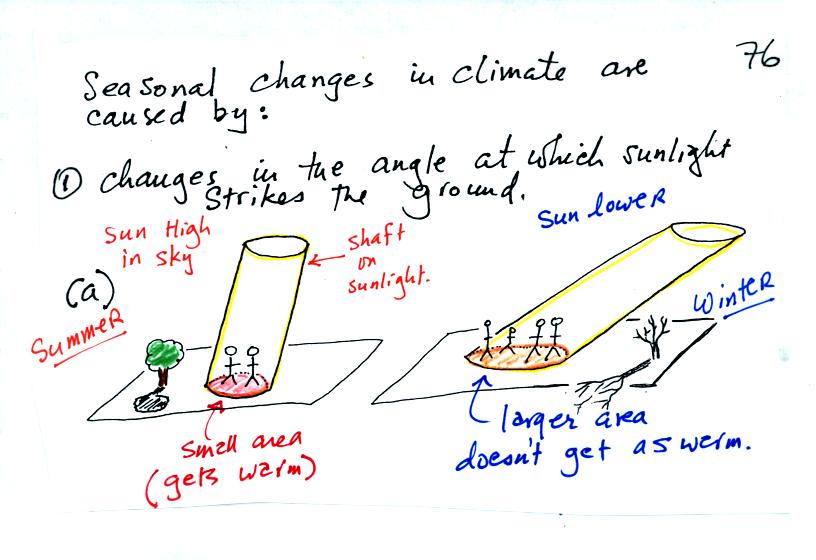 76
Seasonal changes in climate are
caused by:
① changes in the angle at which sunlight
strikes the ground.
(a)
Summer
Sun High
in sky
shaft
on
sunlight.
small area
(gets warm)
Sun lower
Winter
larger area
doesn't get as warm.